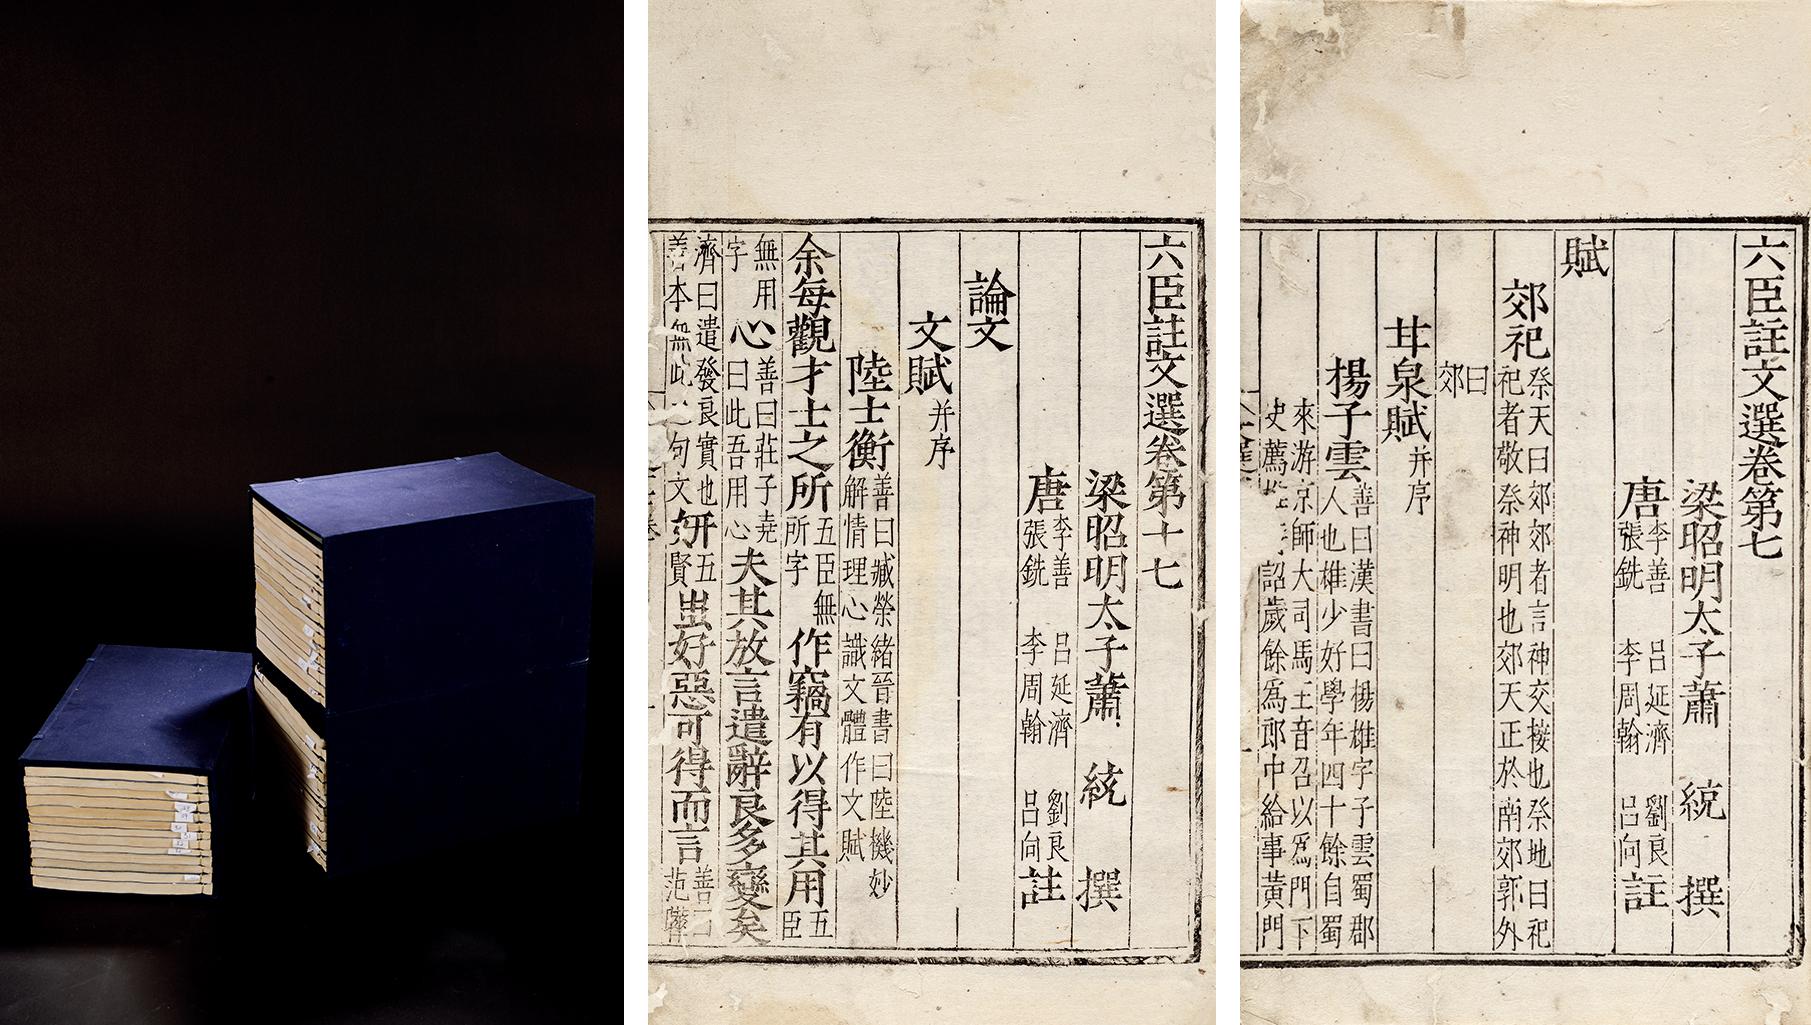 六臣註文選卷第十七
梁昭明太子蕭統撰
唐李善呂延濟劉良張銑李周翰呂向註
論文
文賦并序
陸士衡善曰臧榮緒晉書曰陸機妙解情理心識文體作文賦
余每觀才士之所五臣無所字作竊有以得其用五臣
無用字心善曰莊子堯曰此吾用心夫其放言遣辭良多變矣
濟曰遣發良實也善本無此之句文妍五賢蚩好惡可得而言善曰范曄
六臣註文選卷第七
梁昭明太子蕭統撰
唐李善呂延濟劉良張銑李周翰呂向註
賦
郊祀祭天曰郊郊者言神交接也祭地曰祀祀者敬祭神明也郊天正於南郊郭外
曰郊
甘泉賦并序
楊子雲善曰漢書曰楊雄字子雲蜀郡人也雄少好學年四十餘自蜀
來游京師大司馬王音召以為門下史薦詔歲餘為郎中給事黃門